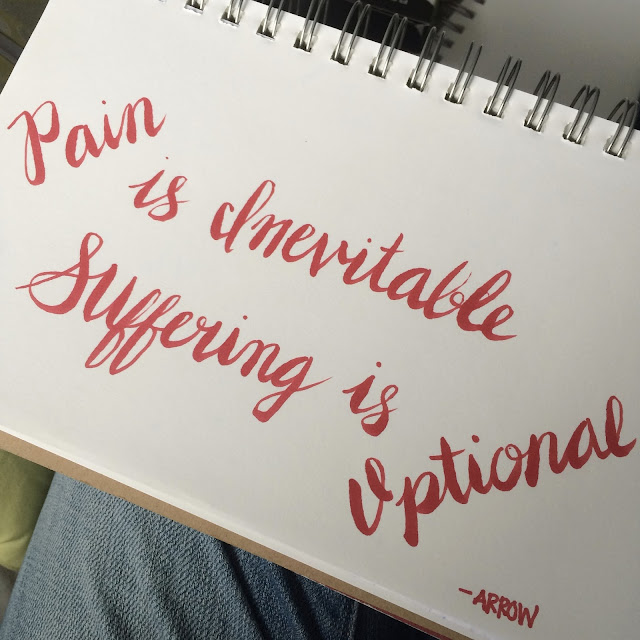 Pain
is Inevitable
Suffering is
Optional
-ARROW